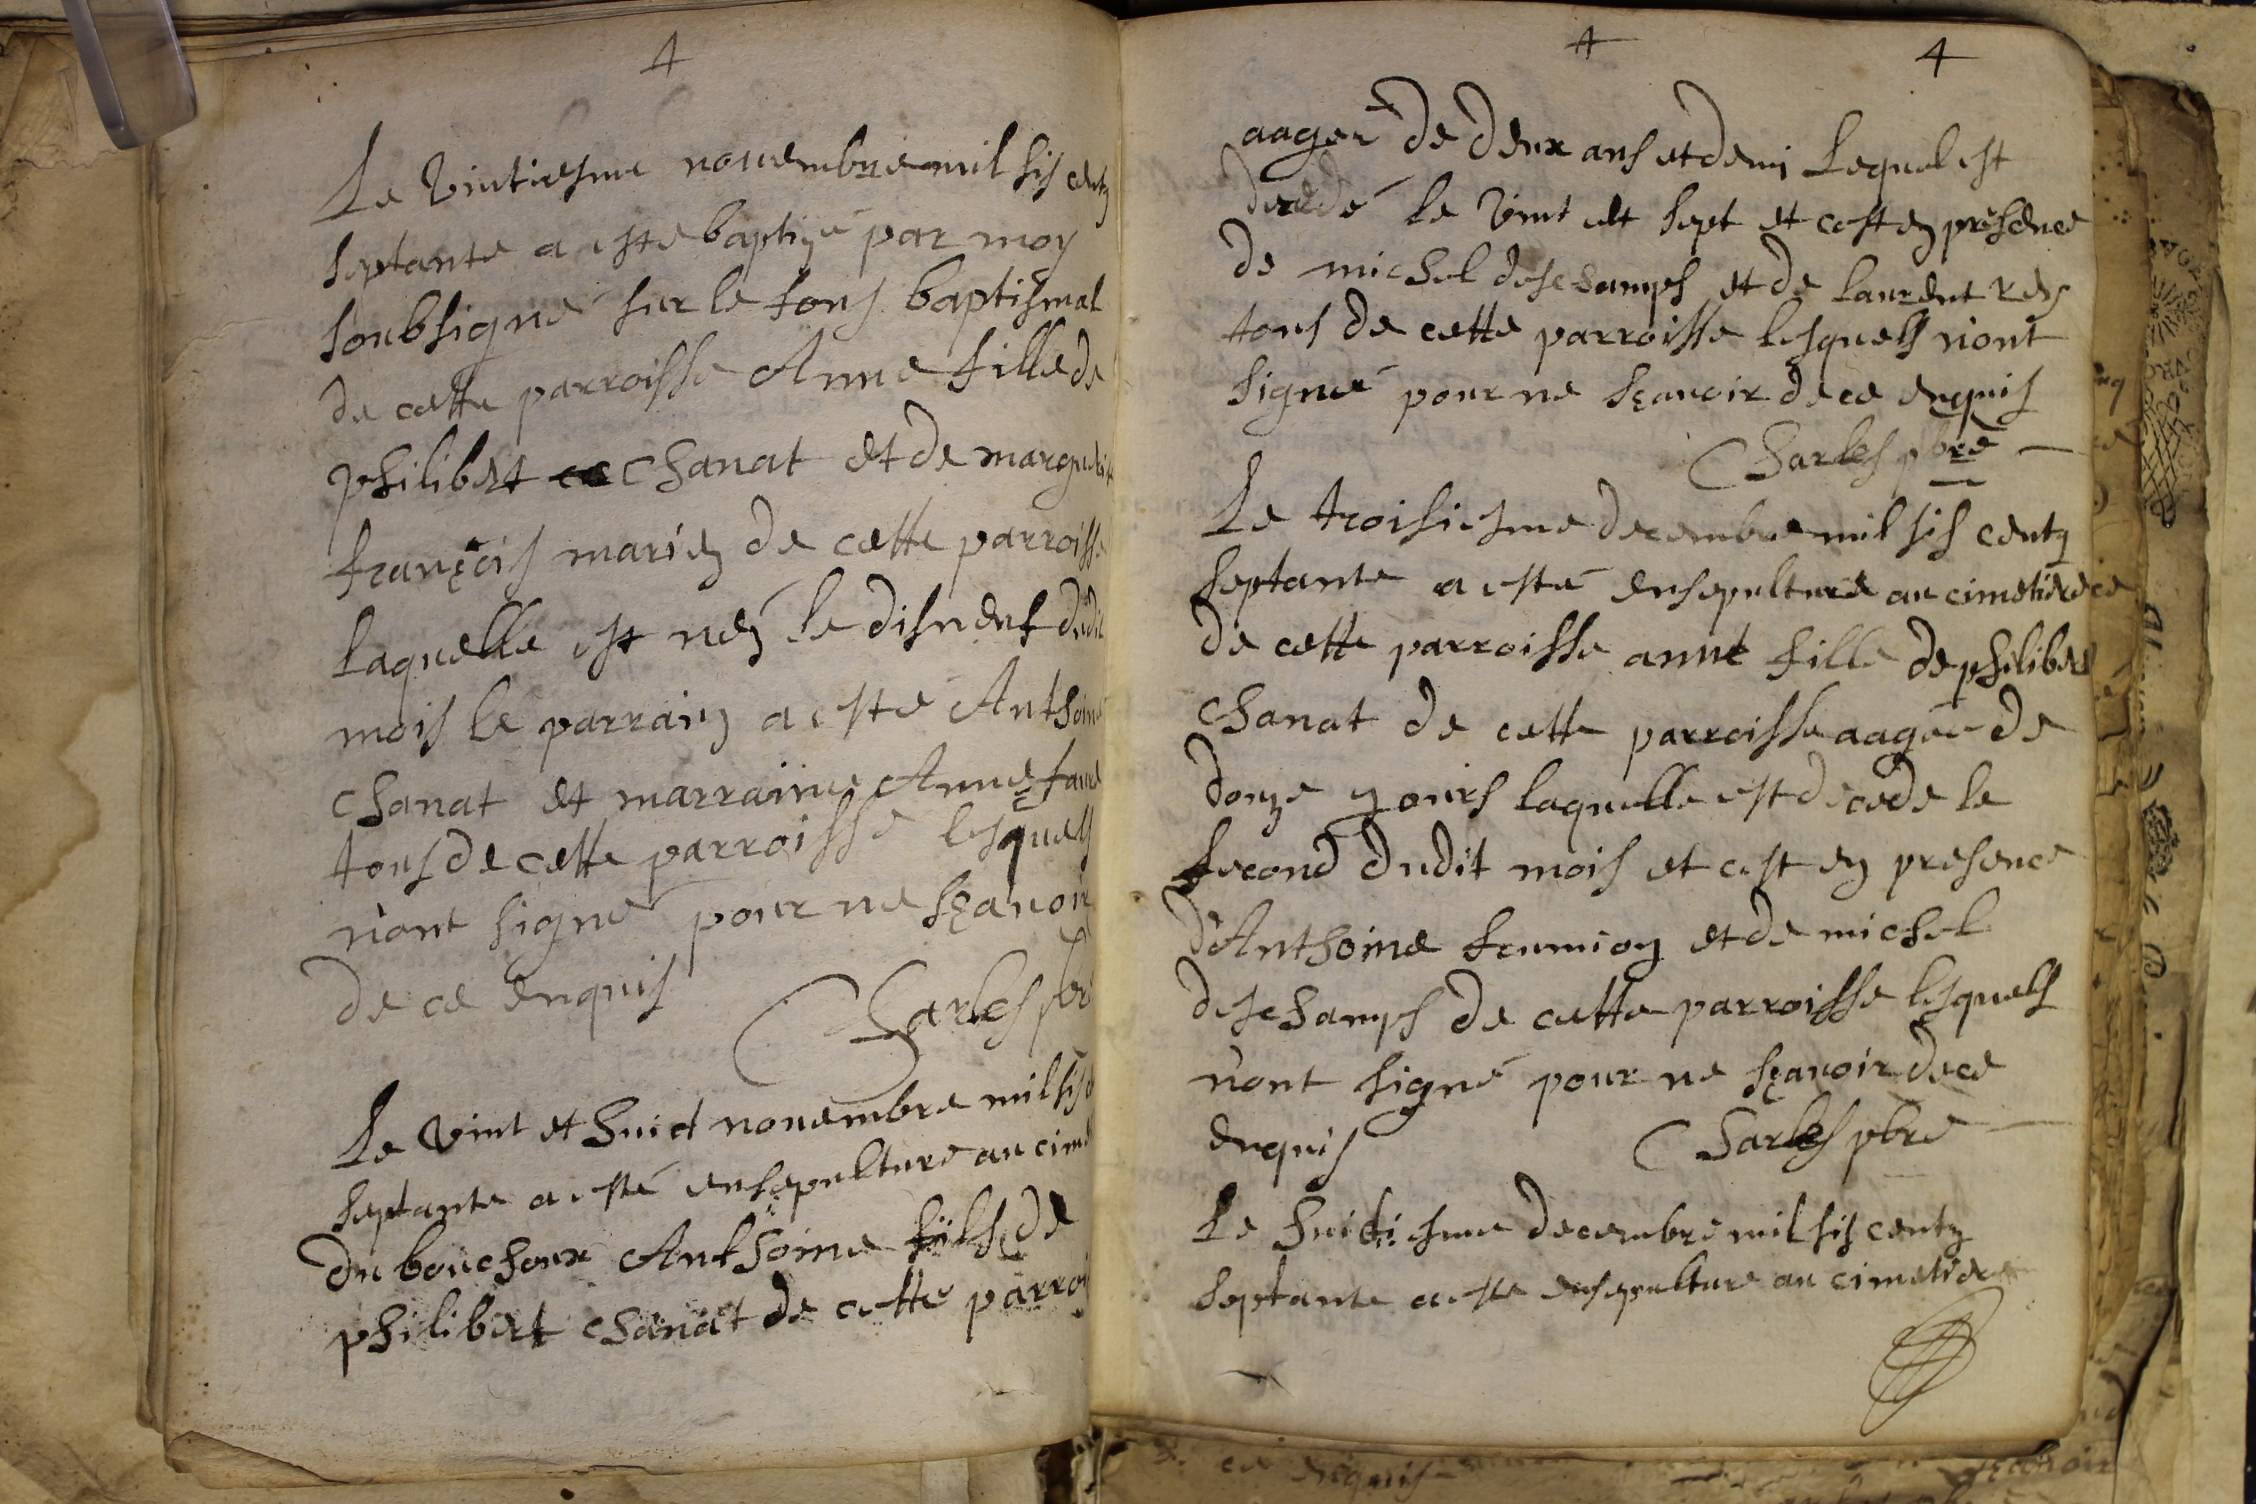 4
Le vintiesme nouembre mil sis centz
septante a este baptizé par moy
soubsigné sur le fons baptismal
de cette parroisse Anne fille de
philibert chanat et de marguerite
françois mariez de cette parroisse
laquelle est neé le disneuf dudit
mois le parrain a esté Anthoine
chanat et marraine Anne faure
tous de cette parroisse lesquels
n'ont signé pour ne sçauoir
de ce enquis
Charles pbre
Le vint et huict nouembre mil sis
septante a esté ensepulture au cime
du bouchoux Anthoine fils de
philibert chanat de cette parroi
4 4
aagér de deux ans et demi Lequel est
decedé le vint et sept et cest en presence
de michel deschamps et de laurent rey
tous de cette parroisse lesquels n'ont
signé pour ne sçauoir de ce enquis
Charles pbre
Le troisiesme decembre mil sis centz
septante a esté ensepulturé au cimetiere
de cette parroisse anne fille de philibert
chanat de cette parroisse aagée de
donze yours laquelle est decede le
second dudit mois et cest en presence
d'Anthoine et de michel
deschamps de cette parroisse lesquels
n'ont signé pour ne sçauoir de ce
enquis
Charles pbre
Le huictiesme decembre mil sis centz
septante a este ensepulture au cimetiere
ce enquis
sçauoir